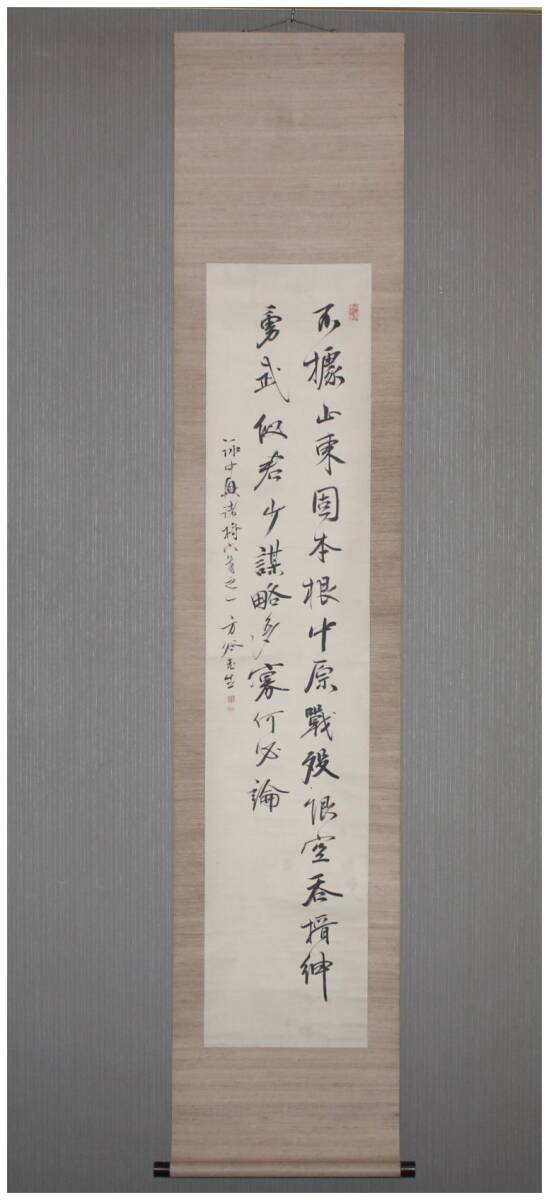 不據山東固本根中原戰歿恨空吞搢紳
勇武似君少謀略多寡何必論
詠中興諸将六首之一 方谷